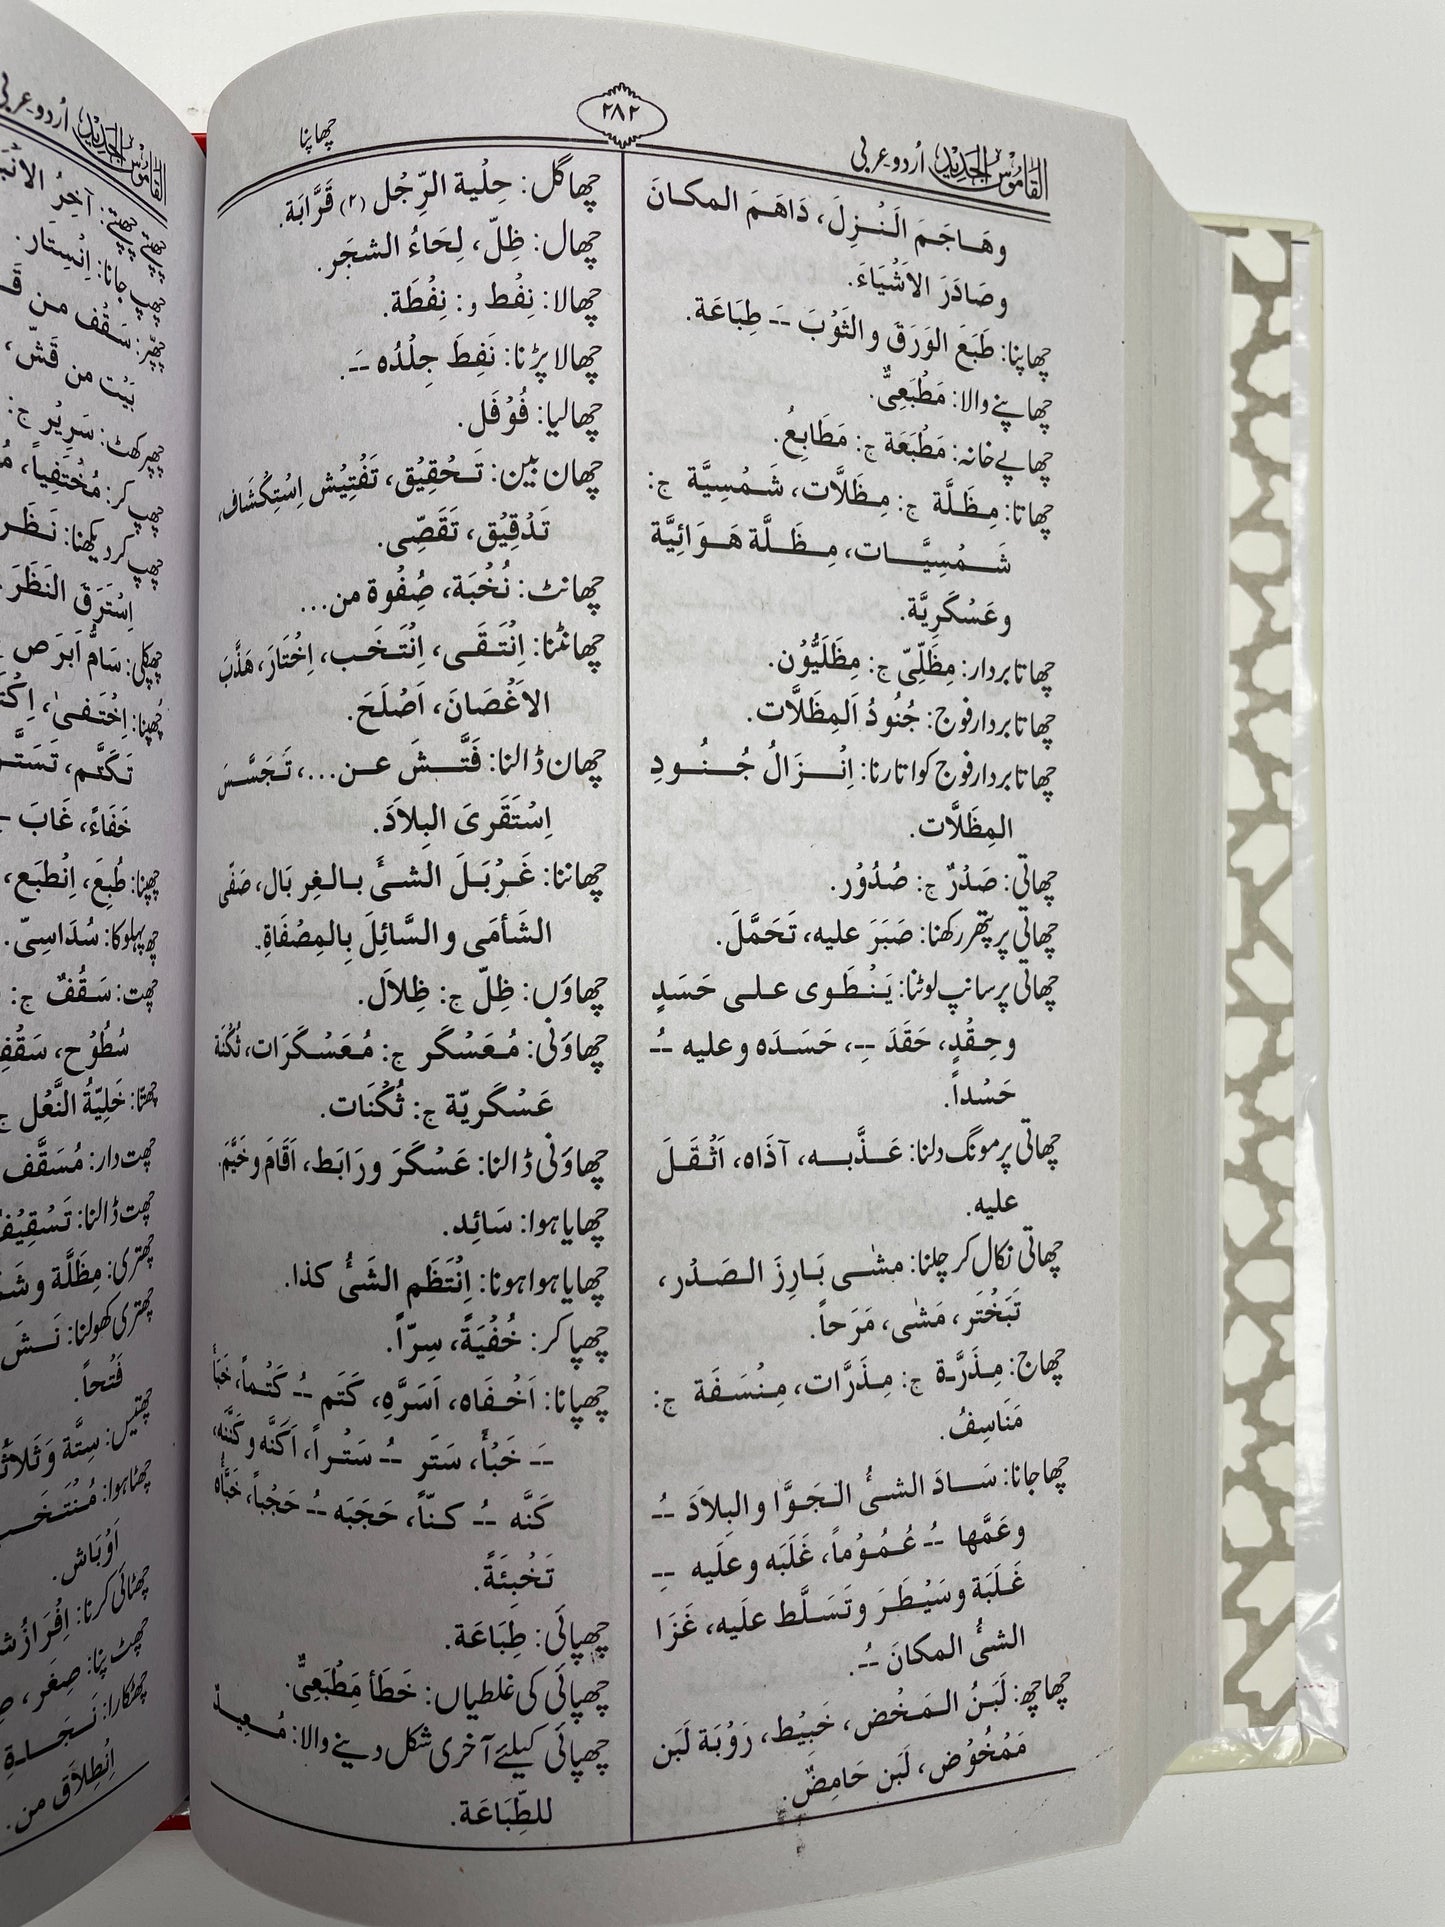 القاموس الجدید اُردو۔عربی
۲۸۲
چھاپنا
وهَـاجَـمَ الَـنُـزِلَ، دَاهَـمَ المكـانَ
وصَادَرَ الاَشْيَاءَ.
چھاپنا: طَبَعَ الوَرَقَ والثَوْبَ -- طِبَاعَة.
چھاپنے والا: مَطْبَعِىٌّ.
چھاپے خانہ: مَطْبَعَة ج: مَطَابِعُ.
چھاتا: مِـظَـلَّة ج: مِـظَلَّات، شَـمْسِيَّة ج:
شَـمْسِيَّـات، مِـظَـلَّة هَـوَائِيَّة
وعَسْكَرِيَّة.
چھاتا بردار: مِظَلِّىّ ج: مِظَلِّيُّوْن.
چھاتا بردار فوج: جُنُودُ اَلمِظَلَّات.
چھاتا بردار فوج کو اتارنا: اِنْـزَالُ جُـنُـودِ
المِظَلَّات.
چھاتی: صَدْرٌ ج: صُدُوْر.
چھاتی پر پتھر رکھنا: صَبَرَ عليه، تَحَمَّلَ.
چھاتی پر سانپ لوٹنا: يَـنْـطَـوِى عـلـى حَسَدٍ
وحِـقْدٍ، حَقَدَ --ِ، حَسَـدَه وعليه --ُ
حَسْداً.
چھاتی پر مونگ دلنا: عَـذَّبـه، آذَاه، اَثْـقَـلَ
عليه.
چھاتی نکال کر چلنا: مشٰـى بَـارِزَ الـصَـدْر،
تَبَخْتَر، مَشٰى، مَرَحاً.
چھاج: مِـذَرَّـة ج: مِـذَرَّات، مِـنْسَـفَة ج:
مَنَاسِفُ.
چھا جانا: سَـادَ الشئُ الـجَـوَّا والبِلاَدَ --ُ
وعَمَّها --ُ عُـمُـوْماً، غَلَبَه وعلَيه --ِ
غَـلَبَة وسَيْـطَـرَ وتَسَـلَّـط علَيه، غَـزَا
الشئُ المكانَ --ُ.
چھاچھ: لَبَـنُ الـمَـخْض، خَبِيْط، رَوْبَة لَبَن
مَمْخُوْض، لَبَن حَامِضٌ.
چھاگل: حِلْية الرِّجْل (۲) قَرَّابَة.
چھال: ظِلّ، لِحَاءُ الشجَر.
چھالا: نِفْط و: نِفْطَة.
چھالا پڑنا: نَفِطَ جِلْدُه --َ.
چھالیا: فُوْفَل.
چھان بین: تَـحْقِيْق، تَفْتِيْش اِسْتِكْشَاف،
تَدْقِيْق، تَقَصِّى.
چھانٹ: نُخْبَة، صِفْوة من...
چھانٹنا: اِنْتَـقَـى، اِنْتَـخَـب، اِخْتَارَ، هَذَّبَ
الاَغْصَانَ، اَصْلَحَ.
چھان ڈالنا: فَتَّـشَ عـن...، تَـجَسَّـسَ
اِسْتَقَرىَ البِلاَدَ.
چھاننا: غَـرْبَـلَ الشـئَ بـالـغِر بَال، صَفّى
الشَأمَى والسَّائِلَ بِالمِصْفَاةِ.
چھاؤں: ظِلّ ج: ظِلاَل.
چھاؤنی: مُـعَسْـكَر ج: مُـعَسْـكَرَات، ثُكْنَة
عَسْكَرِيّة ج: ثُكْنَات.
چھاؤنی ڈالنا: عَسْكَرَ ورَابَط، اَقَامَ وخَيَّمَ.
چھایا ہوا: سَائِد.
چھایا ہوا ہونا: اِنْتَظَم الشَئُ كذا.
چھپا کر: خُفْيَةً، سِرّاً.
چھپانا: اَخْـفَاه، اَسَرَّهِ، كَتَم --ُ كَتْـماً، خَبَأَ
--َ خَبْأً، سَتَر --ُ سَتْـراً، اَكَنَّه وكَنَّنَه،
كَنَّه --ُ كـنّاً، حَجَبَه --ُ حَجْباً، خَبَّأَه
تَخْبِئَةً.
چھپائی: طِبَاعَة.
چھپائی کی غلطیاں: خَطَأ مِطْبَعِىٌّ.
چھپائی کیلئے آخری شکل دینے والا: مُـعِيـدٌ
للطِّبَاعَة.
القاموس الجدید اُردو۔عربی
جانا: اِنْستِار.
سَقْف مِن
بَيْت من قَشّ،
سَرِيْر ج:
چھپ کر: مُخْتَفِياً،
چھپ کر دیکھنا:
اِسْتَرَقَ النَظَرَ
چھپکلی: سَامُّ اَبرَص
چھپنا: اِخْتَـفىٰ،
تَكَتَّم،
خَفَاءً، غَابَ
چھپنا: طُبِعَ، اِنْطَبَع،
چھ پہلو کا: سُدَاسِىّ.
چھت: سَقُفٌ ج:
سُطُوْح،
خَلِيَّةُ النَّعْل
چھت دار: مُسَقَّف
چھت ڈالنا:
چھتری: مِظَلَّة
چھتری کھولنا:
فَتْحاً.
چھتیس:
اَوْبَاش.
اِنْطِلاَق من.